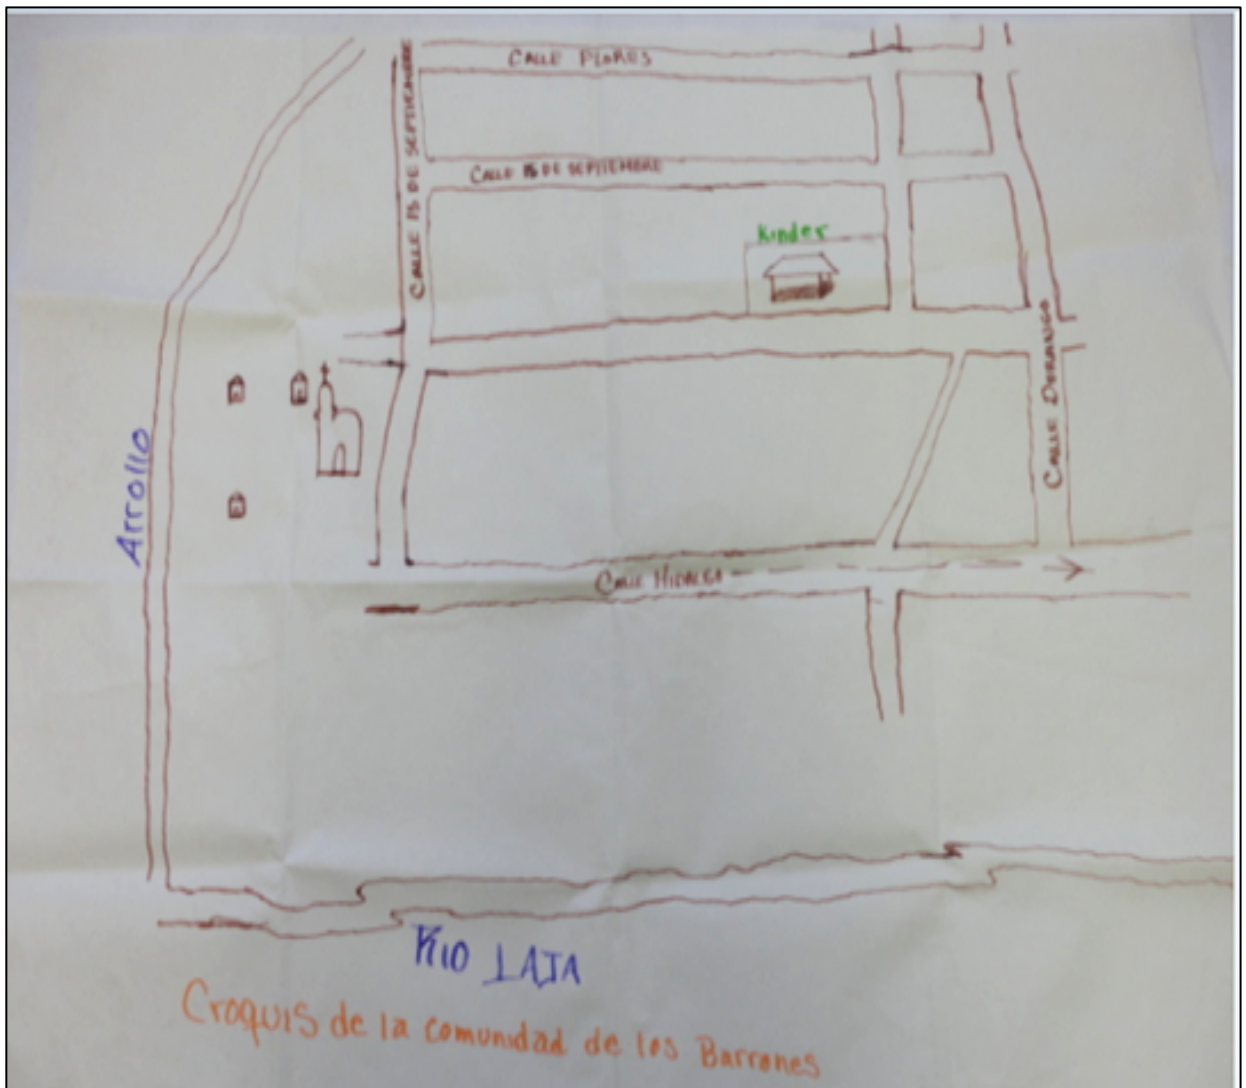 CALLE FLORES
CALLE 15 DE SEPTIEMBRE
CALLE 15 DE SEPTIEMBRE
Kinder
CALLE DURANGO
Arrollo
CALLE HIDALGO
RIO LAJA
Croquis de la comunidad de los Barrones